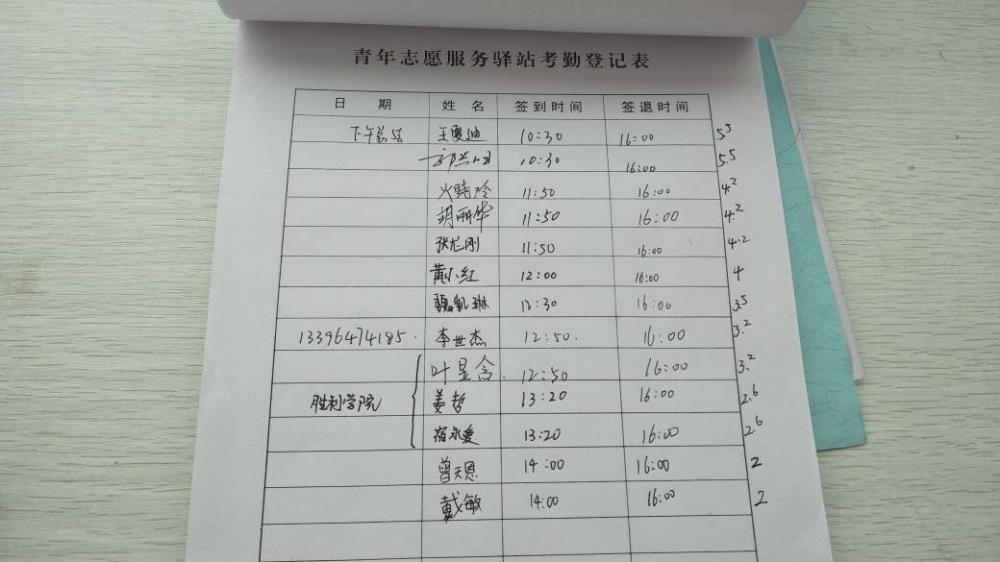 青年志愿服务驿站考勤登记表
日 期 姓 名 签到时间 签退时间
下午 王夏迪 10:30 16:00 5.5
10:30 16:00 5.5
火晓玲 11:50 16:00 4.2
胡丽华 11:50 16:00 4.2
张龙刚 11:50 16:00 4.2
黄小红 12:00 16:00 4
魏凯琳 12:30 16:00 3.5
13396474185. 李世杰 12:50. 16:00 3.2
叶星含. 12:50 16:00 3.2
胜利学院 姜哲 13:20 16:00 2.6
宿永爱 13:20 16:00 2.6
曾天恩 14:00 16:00 2
戴敏 14:00 16:00 2